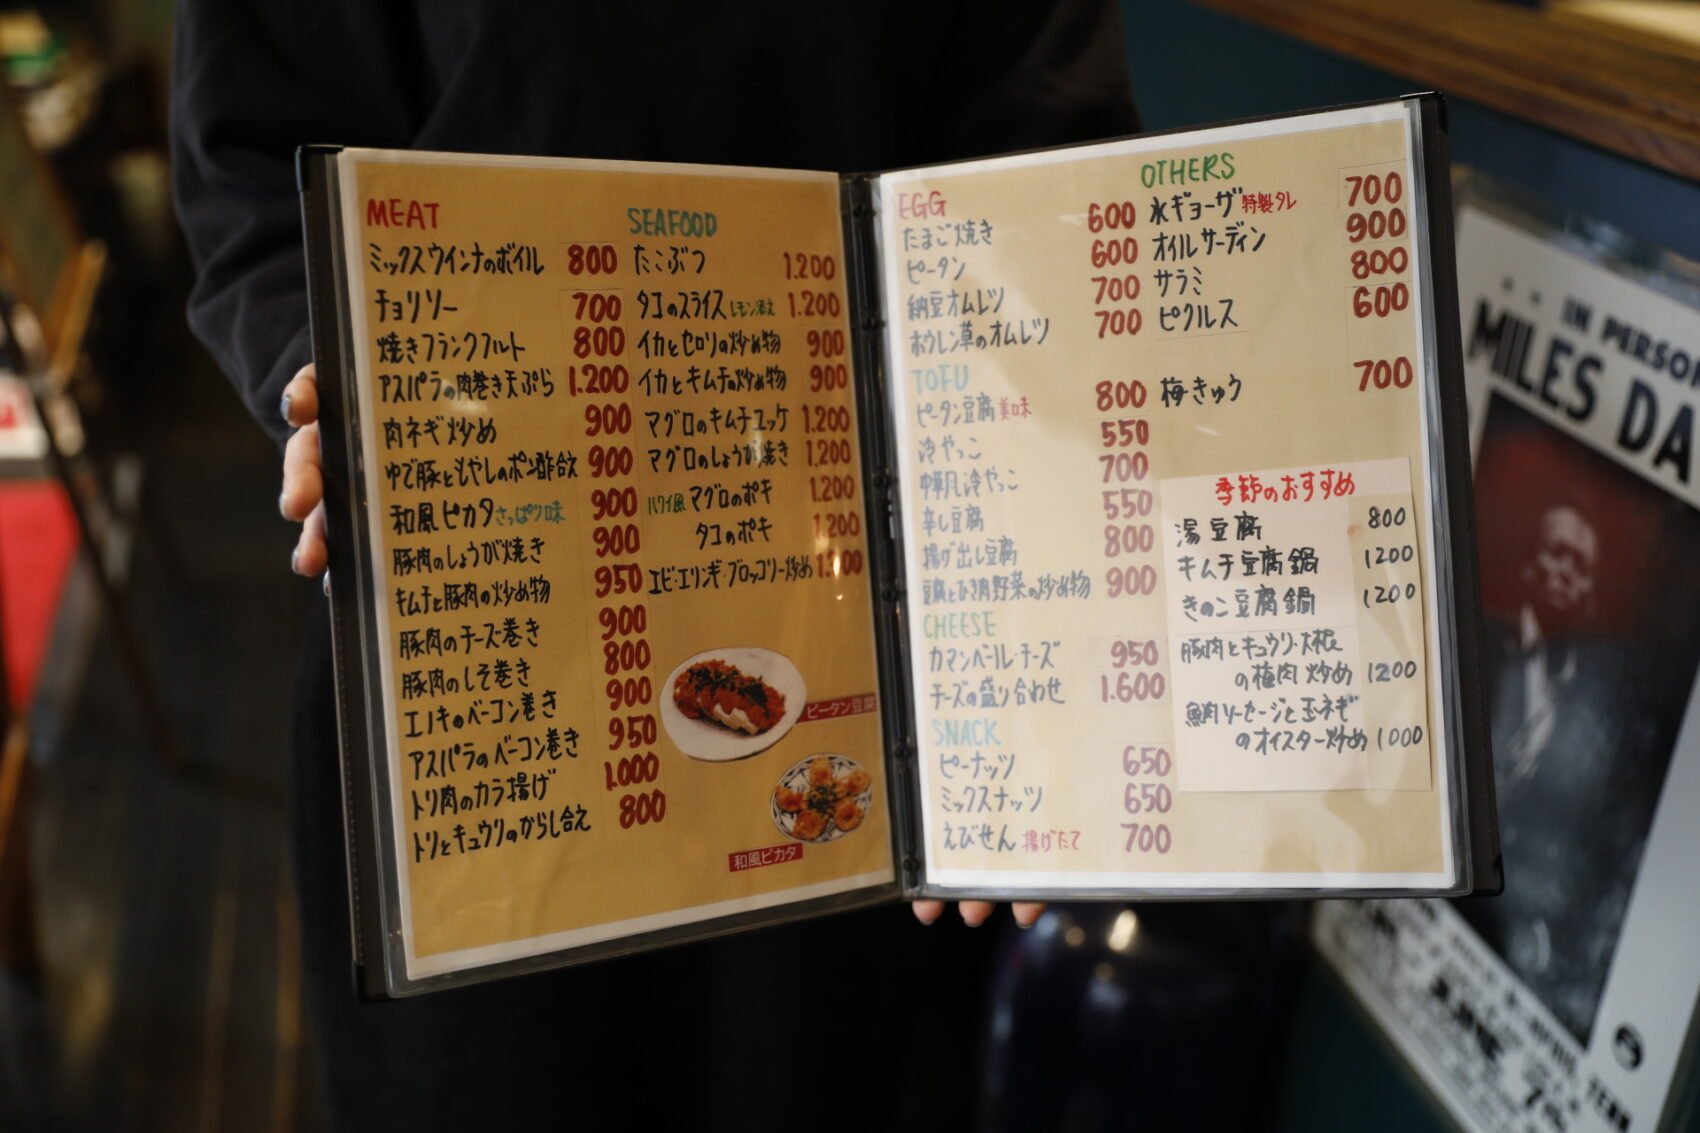 MEAT
ミックスウインナのボイル 800
チョリソー 700
焼きフランクフルト 800
アスパラの肉巻き天ぷら 1.200
肉ネギ炒め 900
ゆで豚ともやしのポン酢合え 900
和風ピカタ さっぱり味 900
豚肉のしょうが焼き 900
キムチと豚肉の炒め物 950
豚肉のチーズ巻き 900
豚肉のしそ巻き 800
エノキのベーコン巻き 900
アスパラのベーコン巻き 950
トリ肉のカラ揚げ 1.000
トリとキュウリのからし合え 800
SEAFOOD
たこぶつ 1.200
タコのスライス レモン添え 1.200
イカとセロリの炒め物 900
イカとキムチの炒め物 900
マグロのキムチユッケ 1.200
マグロのしょうが焼き 1.200
ハワイ風 マグロのポキ 1.200
タコのポキ 1.200
エビ・エリンギ・ブロッコリー炒め
ピータン豆腐
和風ピカタ
EGG
たまご焼き 600
ピータン 600
納豆オムレツ 700
ホウレン草のオムレツ 700
TOFU
ピータン豆腐 美味 800
冷やっこ 550
中華風冷やっこ 700
辛し豆腐 550
揚げ出し豆腐 800
豆腐とひき肉野菜の炒め物 900
CHEESE
カマンベール・チーズ 950
チーズの盛り合わせ 1.600
SNACK
ピーナッツ 650
ミックスナッツ 650
えびせん 揚げたて 700
OTHERS
水ギョーザ 特製タレ 700
オイルサーディン 900
サラミ 800
ピクルス 600
梅きゅう 700
季節のおすすめ
湯豆腐 800
キムチ豆腐鍋 1200
きのこ豆腐鍋 1200
豚肉とキュウリ・大根
の梅肉炒め 1200
魚肉ソーセージと玉ネギ
のオイスター炒め 1000
IN PERSON
MILES DA
JUNE 7